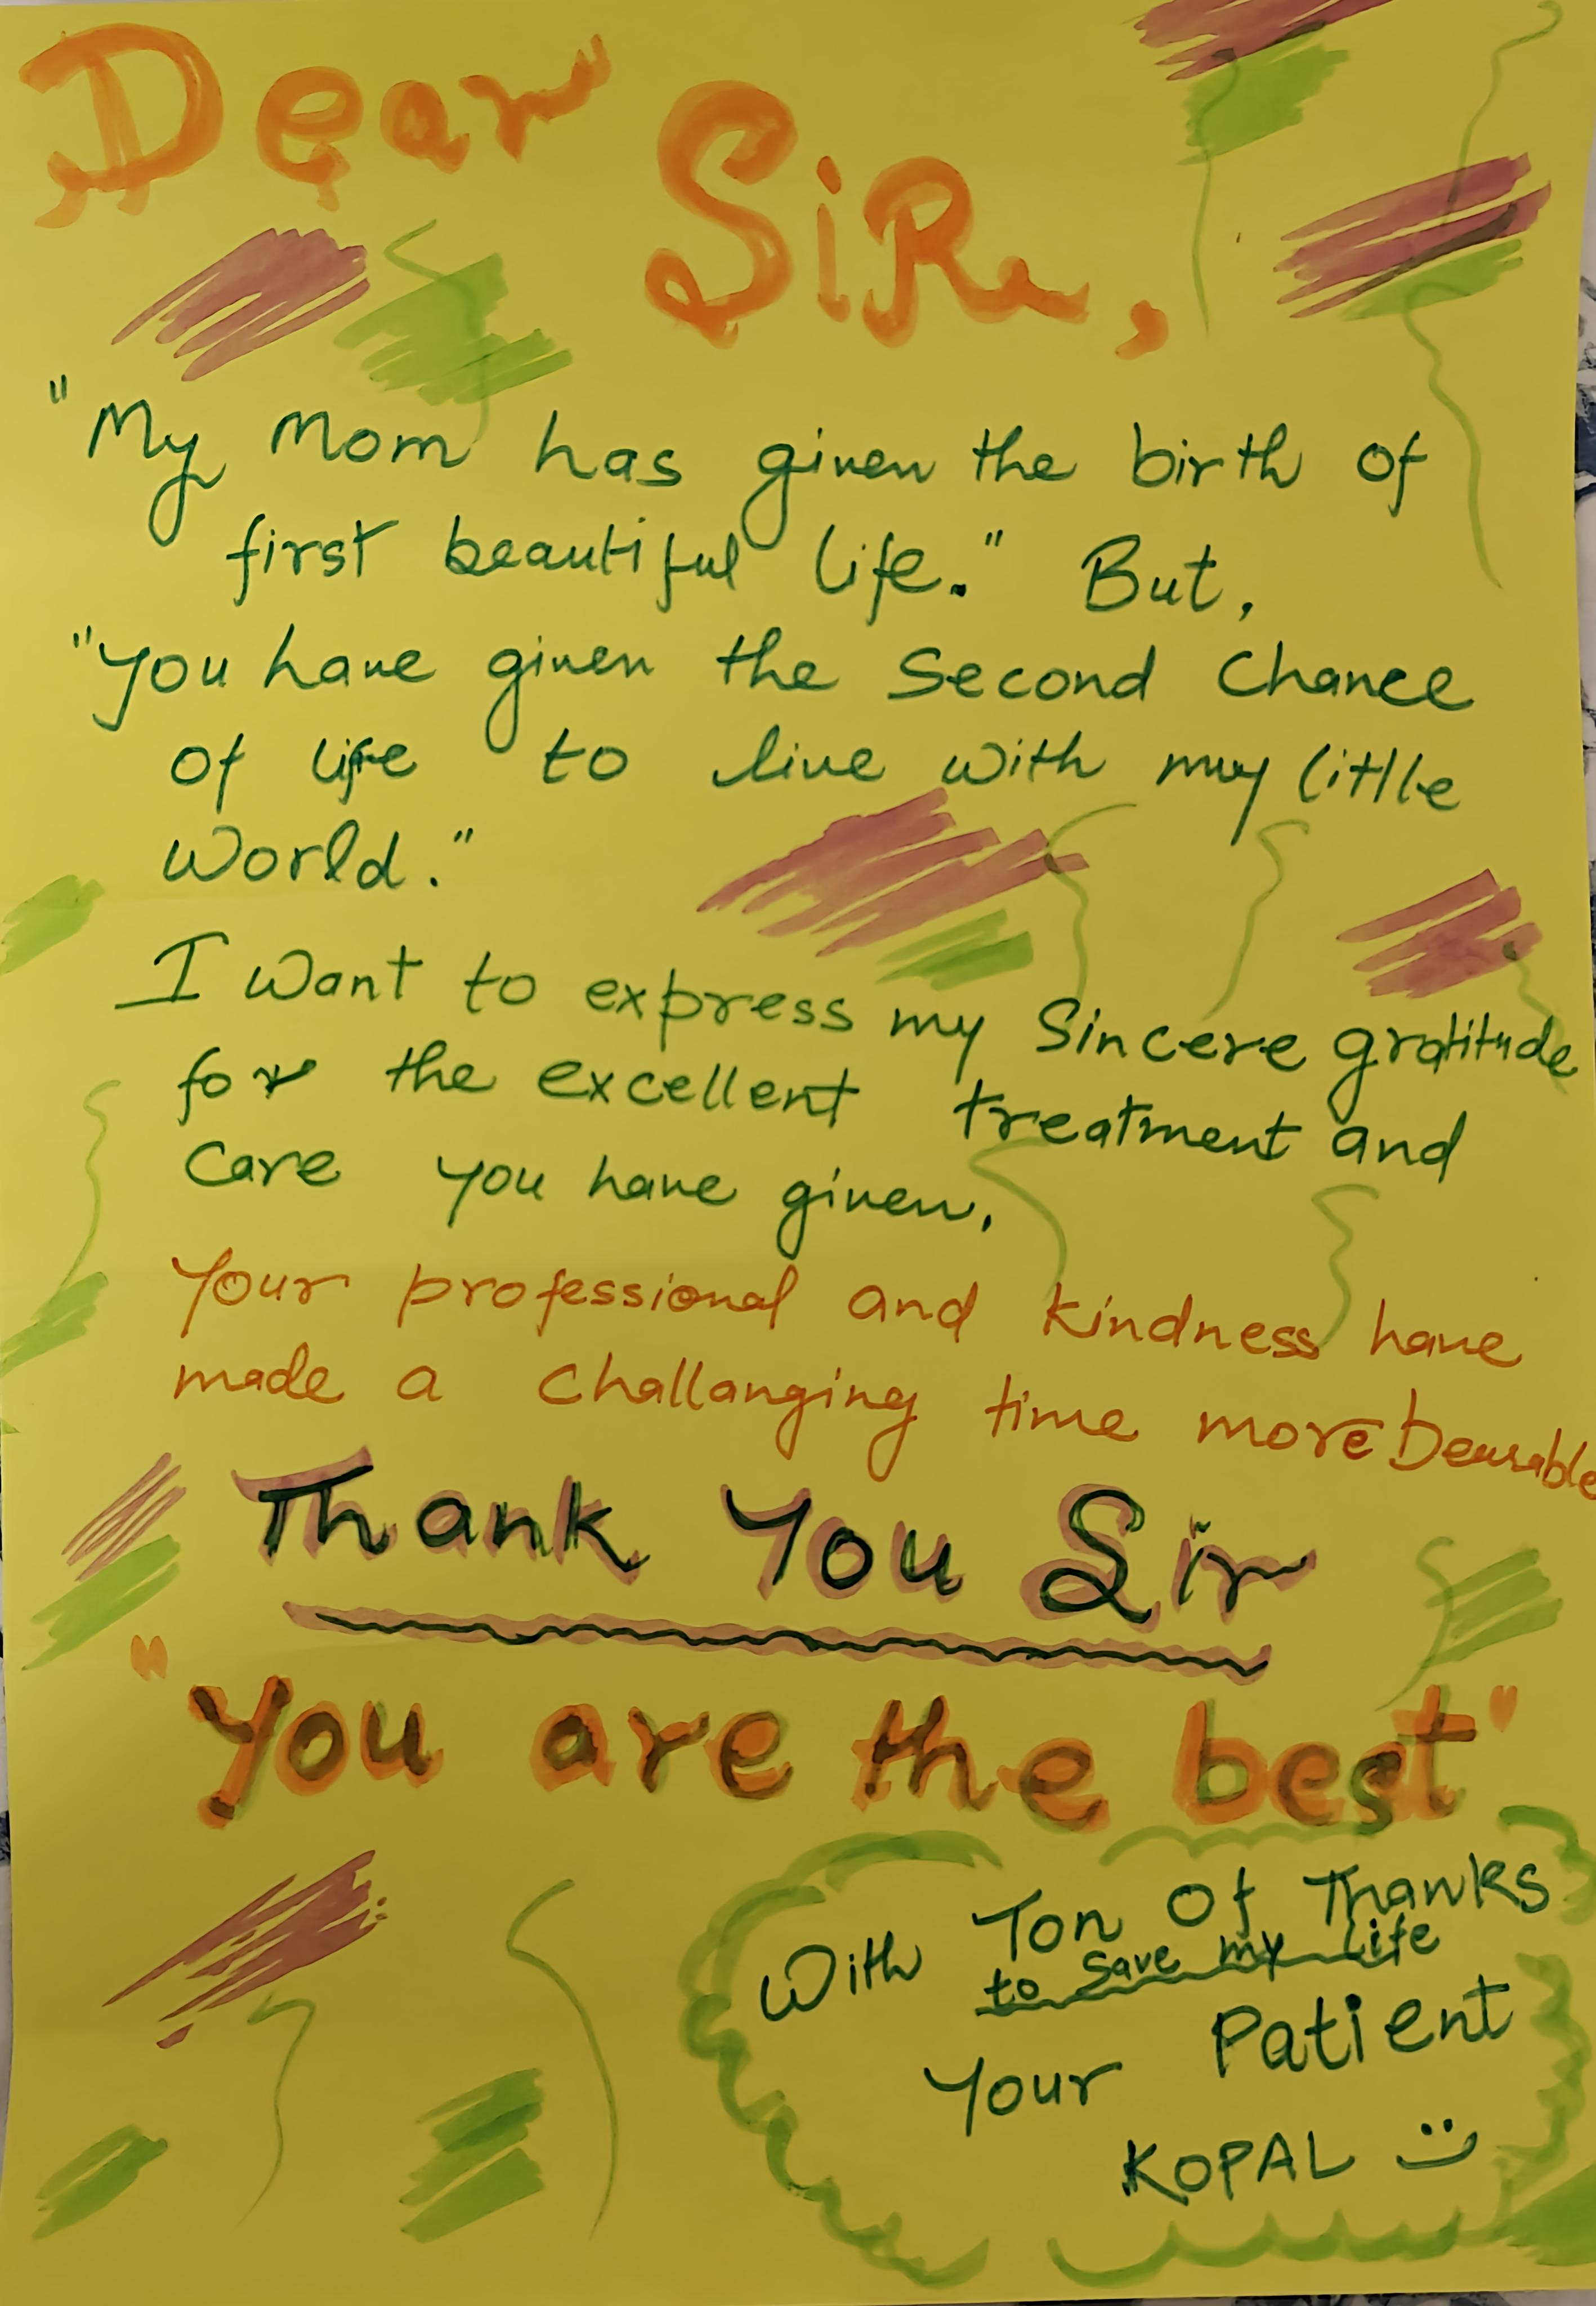 Dear
SiR,
"My Mom has given the birth of
first beautiful life." But,
"You have given the Second Chance
of life to live with my little
world."
I want to express my Sincere gratitude
for the excellent treatment and
Care you have given.
Your professional and kindness have
made a challanging time more bearable
Thank You Sir
"You are the best"
With Ton Of Thanks
to save my Life
Your Patient
KOPAL